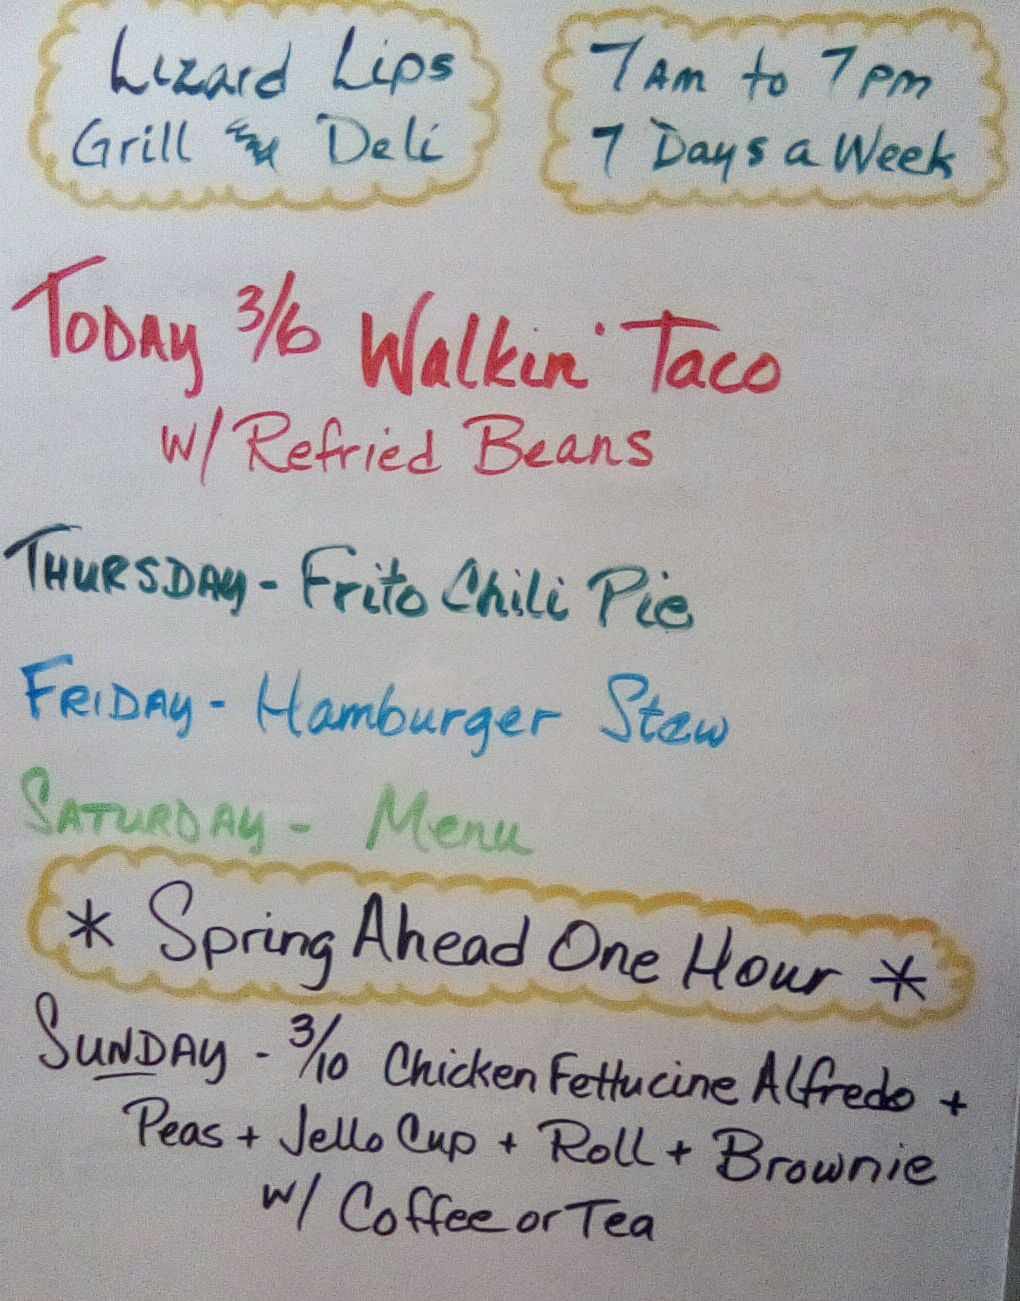 Lizard Lips
Grill and Deli
7 Am to 7 pm
7 Days a Week
TODAY 3/6 Walkin' Taco
w/ Refried Beans
THURSDAY - Frito Chili Pie
FRIDAY - Hamburger Stew
SATURDAY - Menu
* Spring Ahead One Hour *
SUNDAY - 3/10 Chicken Fettucine Alfredo +
Peas + Jello Cup + Roll + Brownie
w/ Coffee or Tea